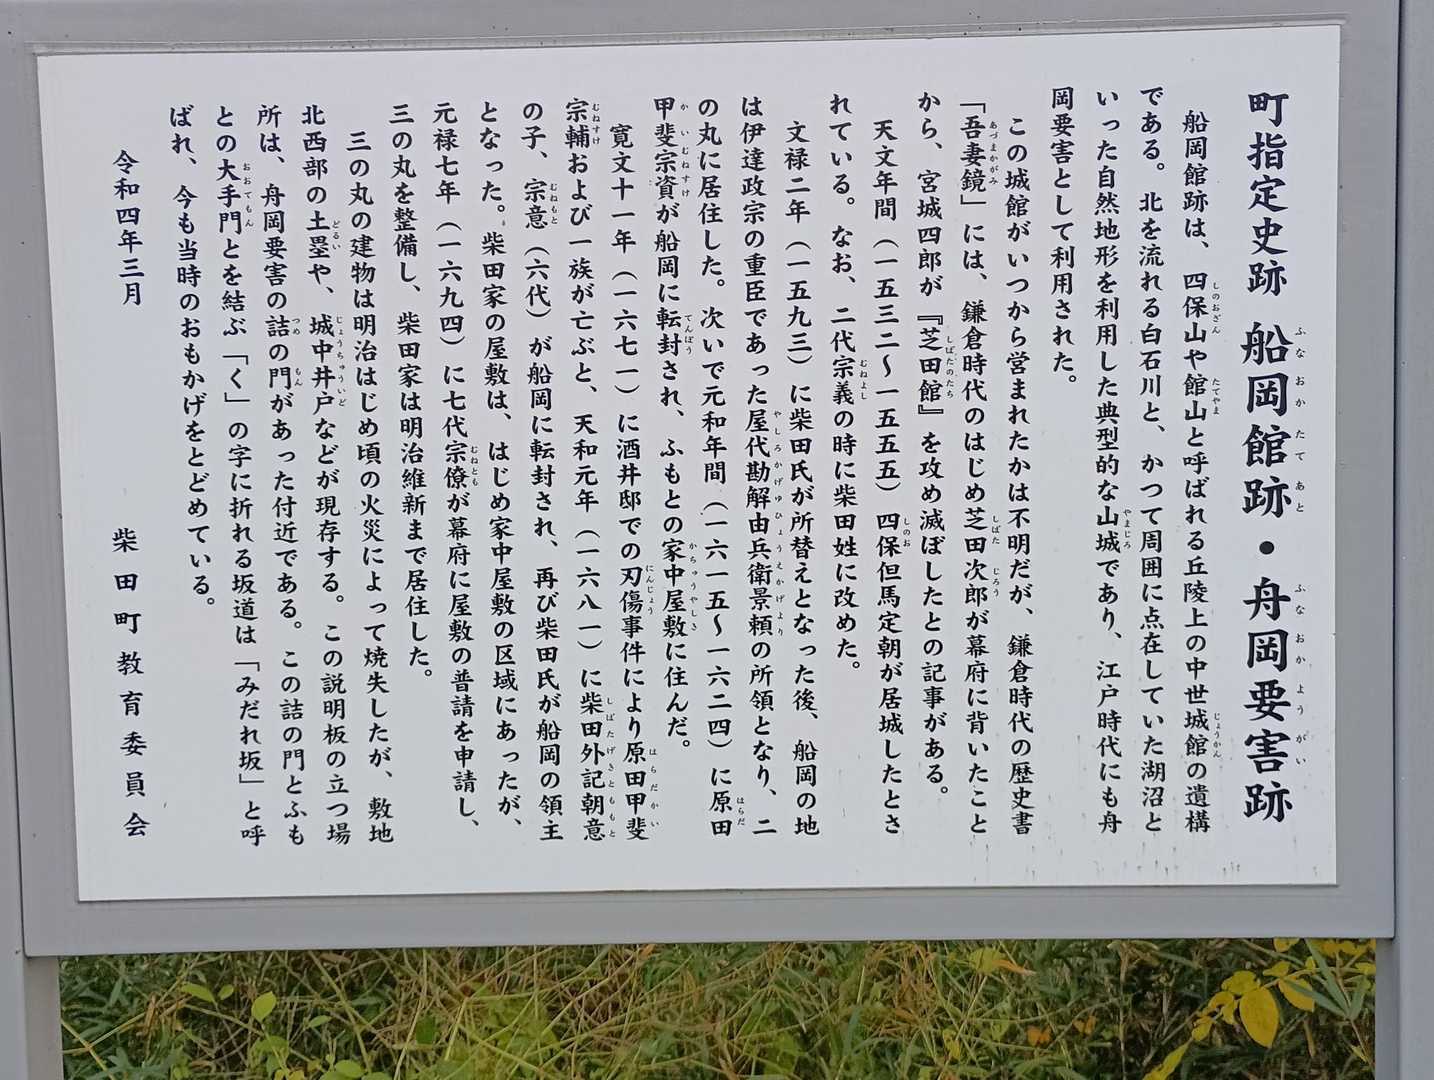 町指定史跡 船岡館跡・舟岡要害跡
船岡館跡は、四保山や館山と呼ばれる丘陵上の中世城館の遺構
である。北を流れる白石川と、かつて周囲に点在していた湖沼と
いった自然地形を利用した典型的な山城であり、江戸時代にも舟
岡要害として利用された。
この城館がいつから営まれたかは不明だが、鎌倉時代の歴史書
「吾妻鏡」には、鎌倉時代のはじめ芝田次郎が幕府に背いたこと
から、宮城四郎が『芝田館』を攻め滅ぼしたとの記事がある。
天文年間（一五三二～一五五五）四保但馬定朝が居城したとさ
れている。なお、二代宗義の時に柴田姓に改めた。
文禄二年（一五九三）に柴田氏が所替えとなった後、船岡の地
は伊達政宗の重臣であった屋代勘解由兵衛景頼の所領となり、二
の丸に居住した。次いで元和年間（一六一五～一六二四）に原田
甲斐宗資が船岡に転封され、ふもとの家中屋敷に住んだ。
寛文十一年（一六七一）に酒井邸での刃傷事件により原田甲斐
宗輔および一族が亡ぶと、天和元年（一六八一）に柴田外記朝意
の子、宗意（六代）が船岡に転封され、再び柴田氏が船岡の領主
となった。柴田家の屋敷は、はじめ家中屋敷の区域にあったが、
元禄七年（一六九四）に七代宗僚が幕府に屋敷の普請を申請し、
三の丸を整備し、柴田家は明治維新まで居住した。
三の丸の建物は明治はじめ頃の火災によって焼失したが、敷地
北西部の土塁や、城中井戸などが現存する。この説明板の立つ場
所は、舟岡要害の詰の門があった付近である。この詰の門とふも
との大手門とを結ぶ「く」の字に折れる坂道は「みだれ坂」と呼
ばれ、今も当時のおもかげをとどめている。
令和四年三月 柴田町教育委員会